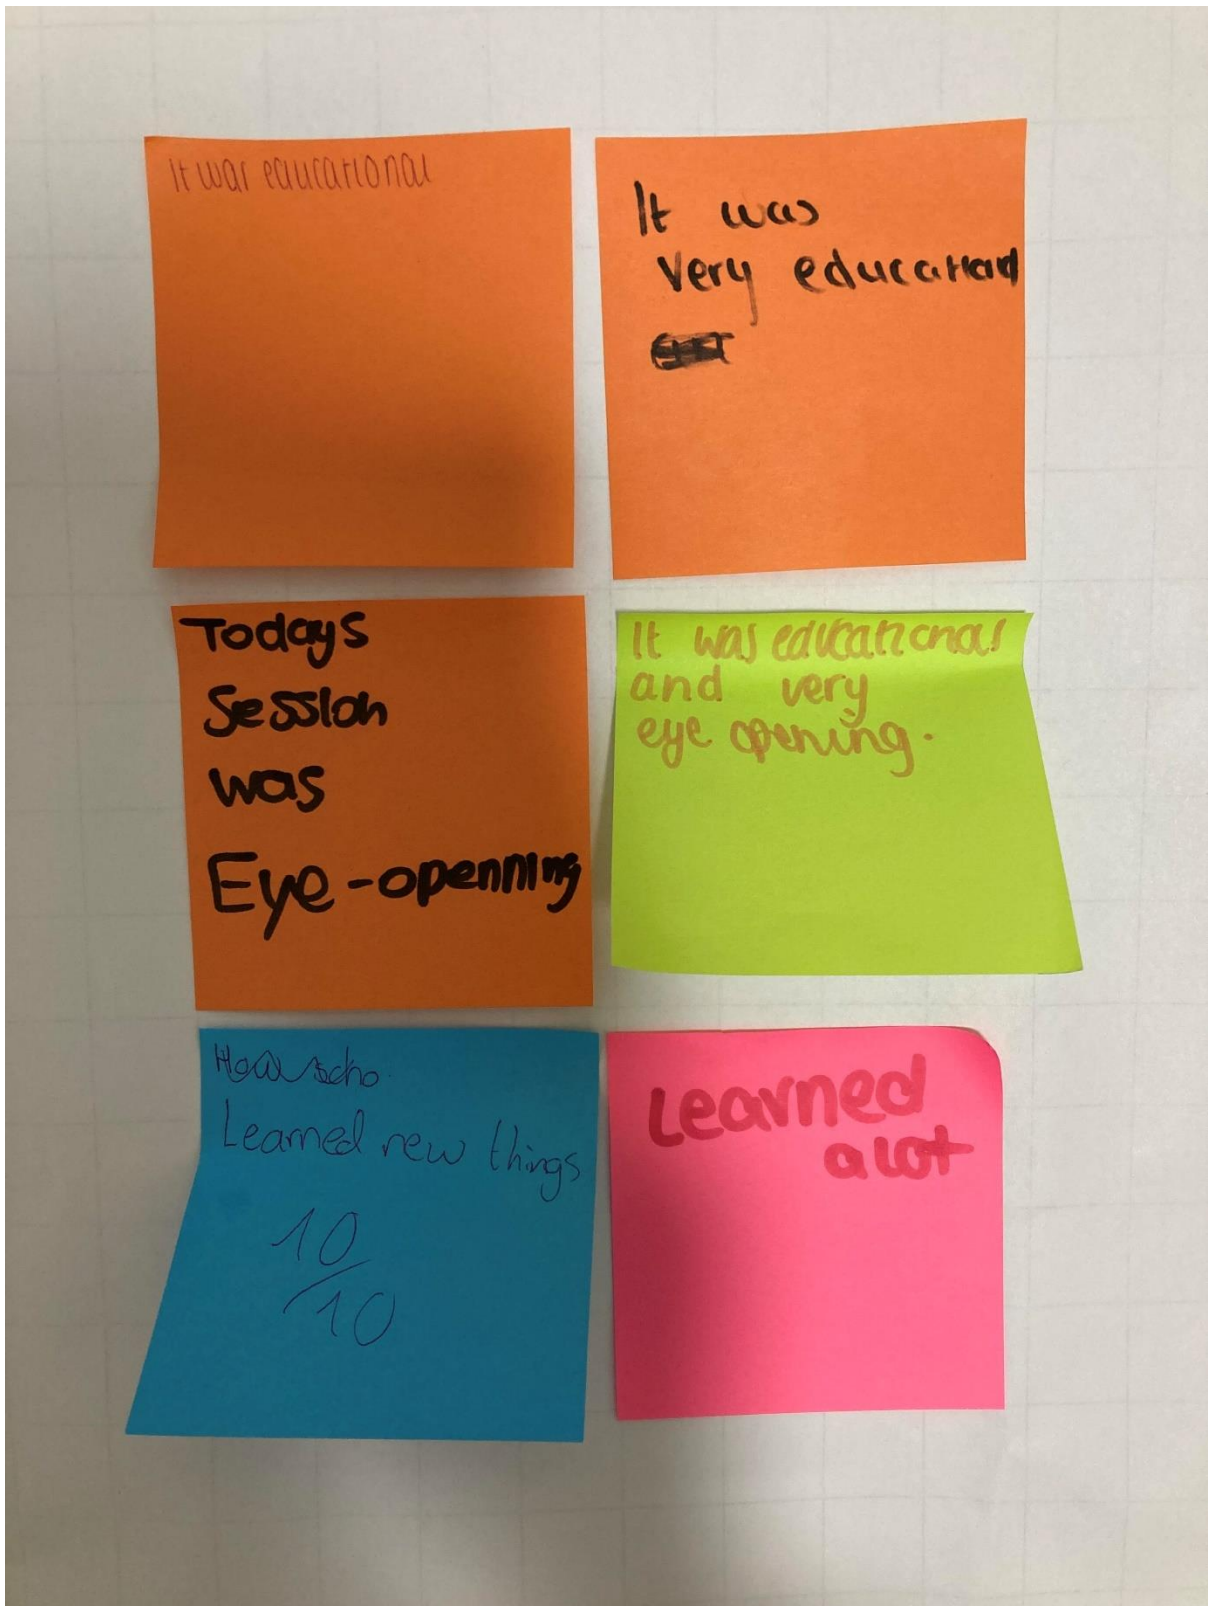 It was educational
It was
very educational
Todays
Session
was
Eye-openning
It was educational
and very
eye opening.
Learned new things
10
/10
Learned
a lot